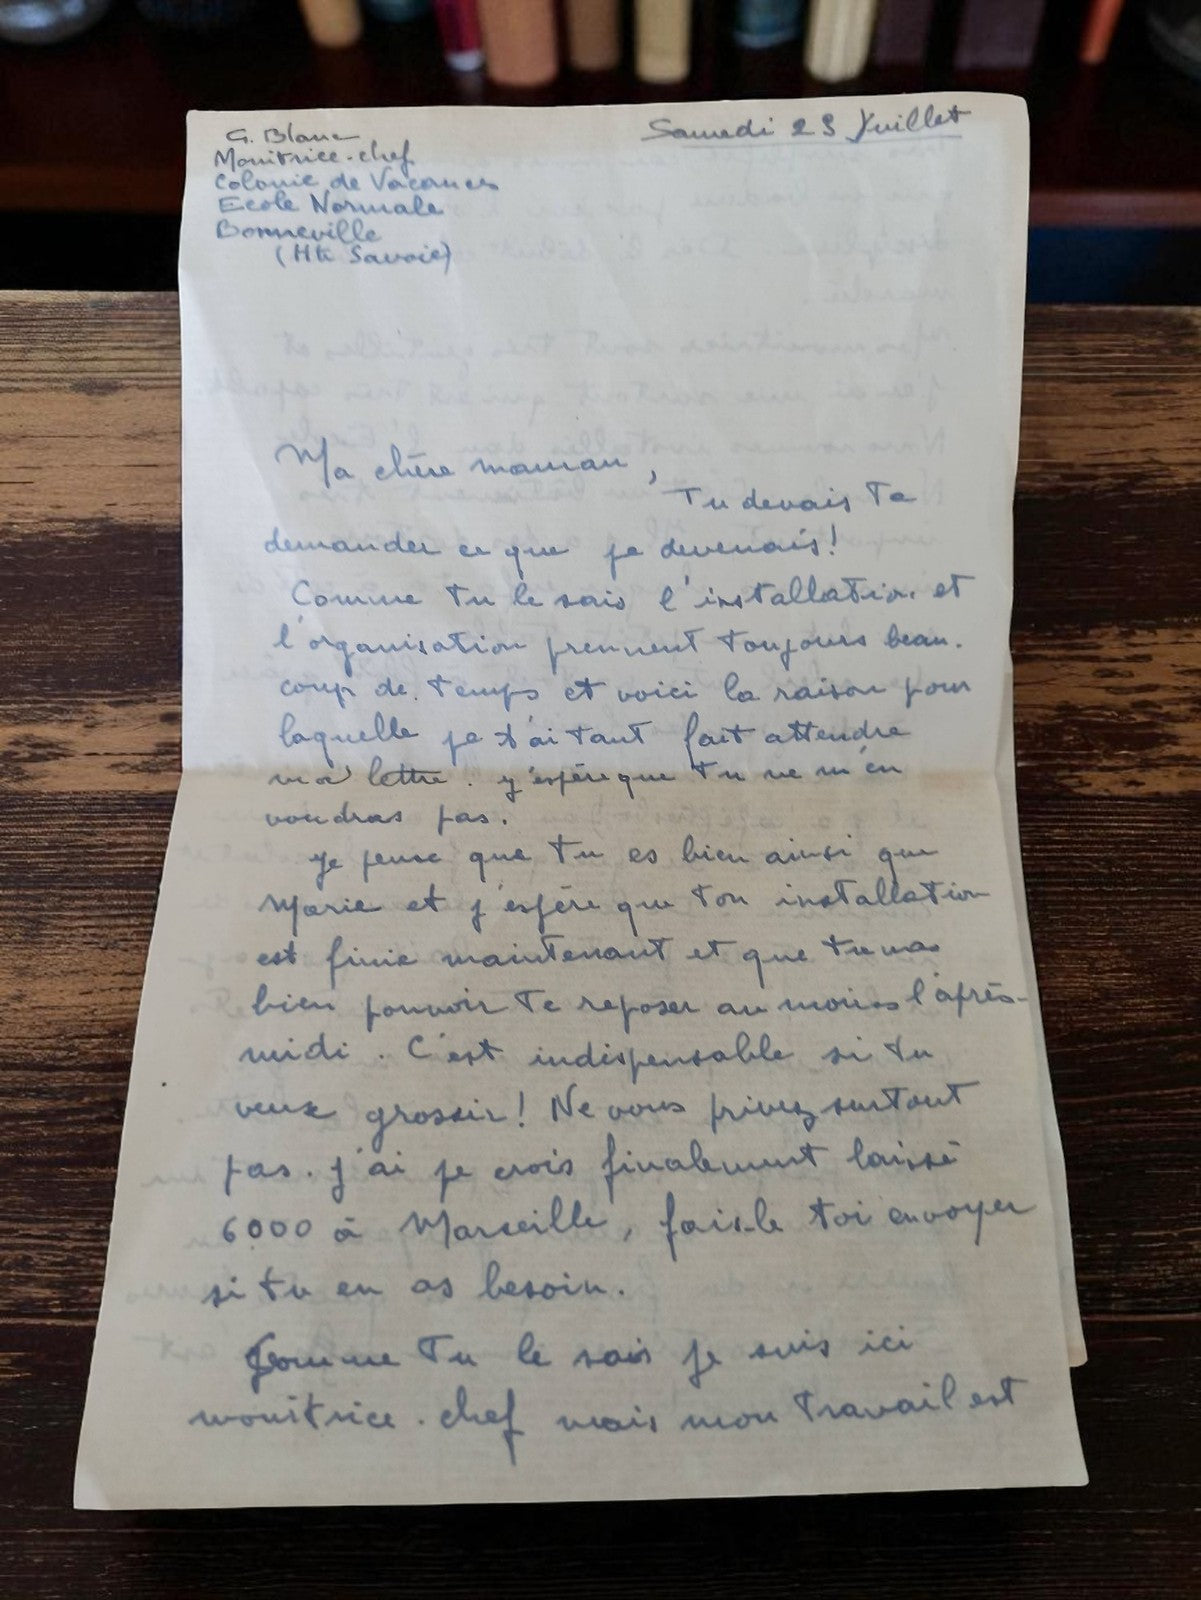 G. Blanc
Monitrice-chef
Colonie de Vacances
Ecole Normale
Bonneville
(Hte Savoie)
Samedi 23 Juillet
Ma chère maman,
Tu devais Te
demander ce que je devenais!
Comme tu le sais l'installation et
l'organisation prennent toujours beau-
coup de temps et voici la raison pour
laquelle je t'ai tant fait attendre
ma lettre. J'espère que tu ne m'en
voudras pas.
Je pense que tu es bien ainsi que
Marie et j'espère que ton installation
est finie maintenant et que tu vas
bien pouvoir te reposer au moins l'après-
midi. C'est indispensable si tu
veux grossir! Ne vous privez surtout
pas. J'ai je crois finalement laissé
6000 à Marseille, fais-le toi envoyer
si tu en as besoin.
Comme tu le sais je suis ici
monitrice-chef mais mon travail est